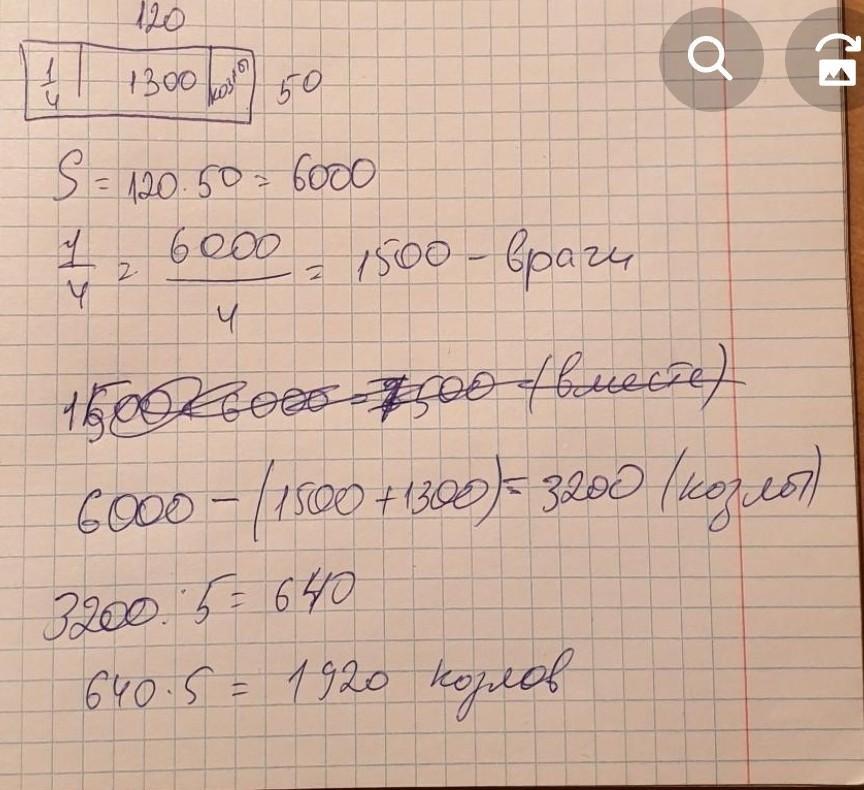 120
1/4 1300 козлы 50
S = 120 · 50 = 6000
1/4 = 6000/4 = 1500 - враги
1500 < 6000 = 7500 - (вместе)
6000 - (1500 + 1300) = 3200 (козлы)
3200 : 5 = 640
640 · 5 = 1920 козлов